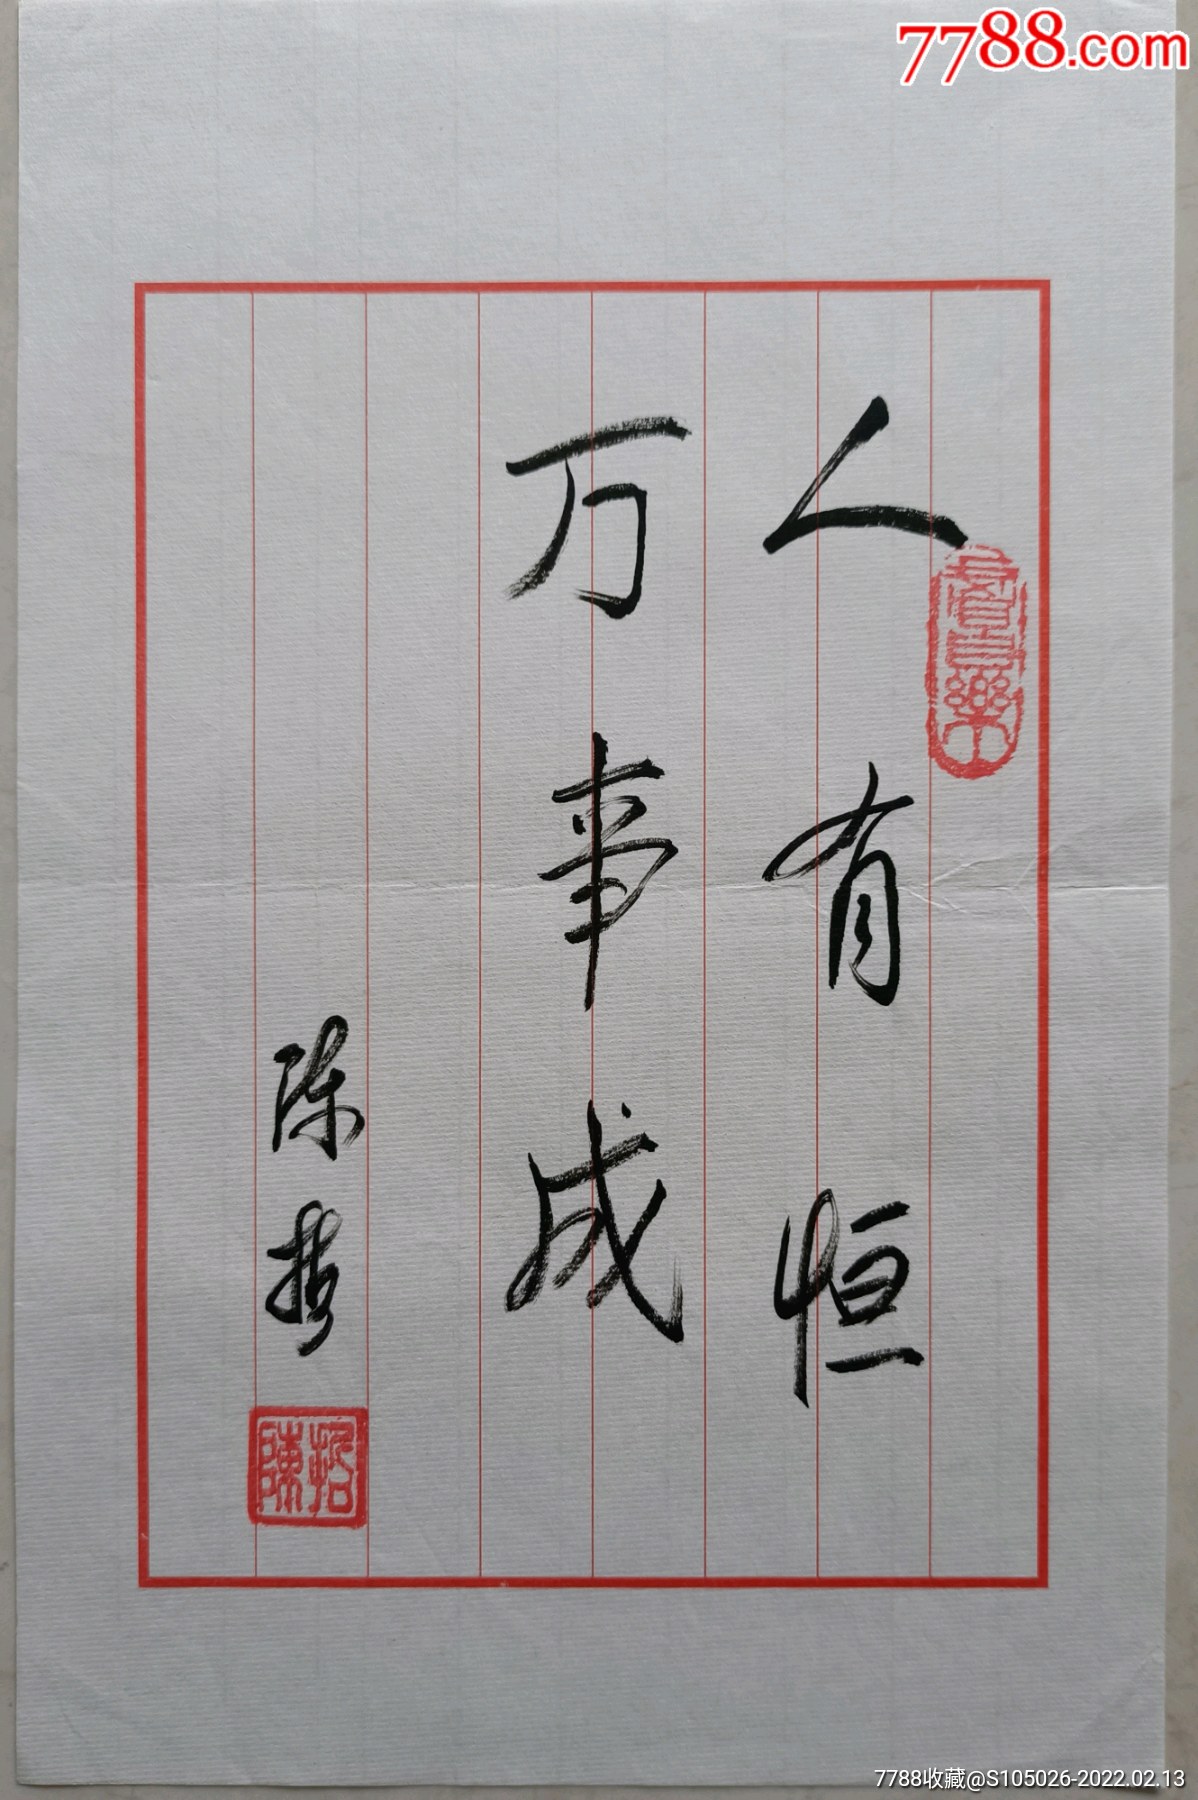 7788.com
人有恒
万事成
陈哲
陳哲
7788收藏@S105026-2022.02.13